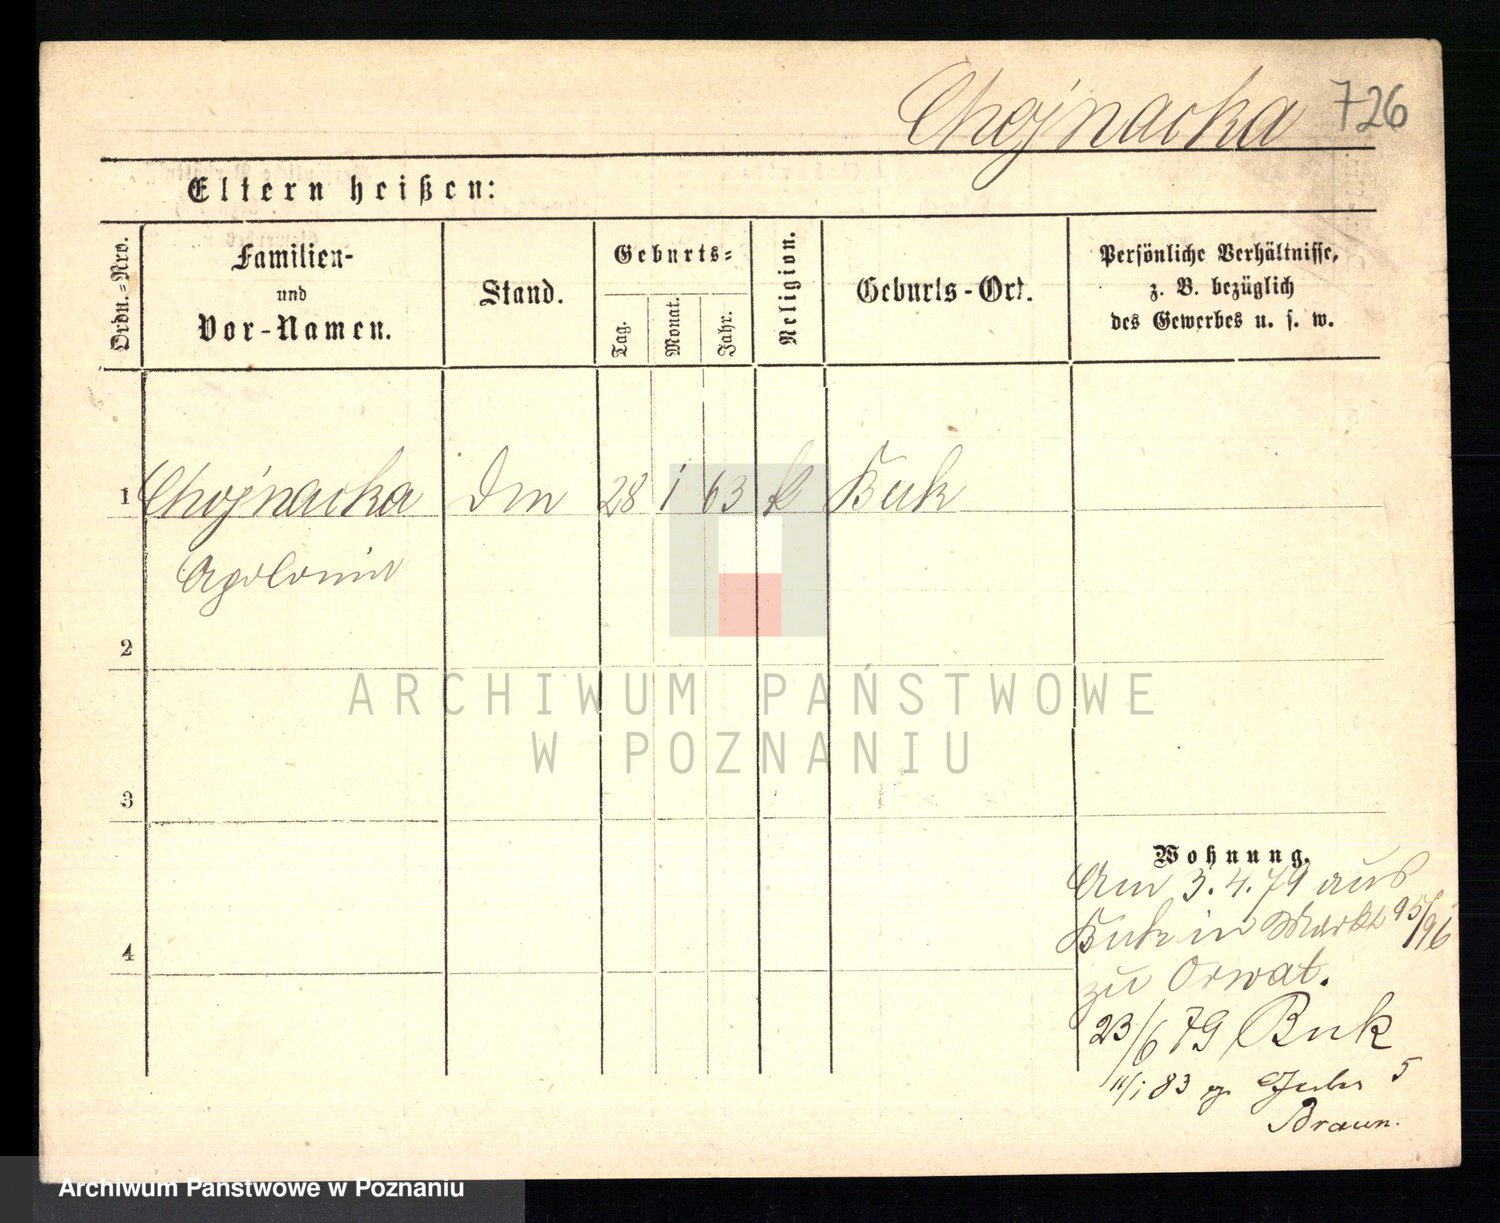 Chojnacka 726
Eltern heißen:
Ordn.=Nro.
Familien-
und
Vor-Namen.
Stand.
Geburts=
Tag.
Monat.
Jahr.
Religion.
Geburts-Ort.
Persönliche Verhältnisse,
z. B. bezüglich
des Gewerbes u. s. w.
1 Chojnacka 28 1 63 k Buk
Apolonia
2
ARCHIWUM PAŃSTWOWE
W POZNANIU
3
Wohnung.
Am 3.4.79 aus
Buk in Markt 95/96
4
zu Orwat.
23/6 79 Buk
11/1 83 5
Braun.
Archiwum Państwowe w Poznaniu